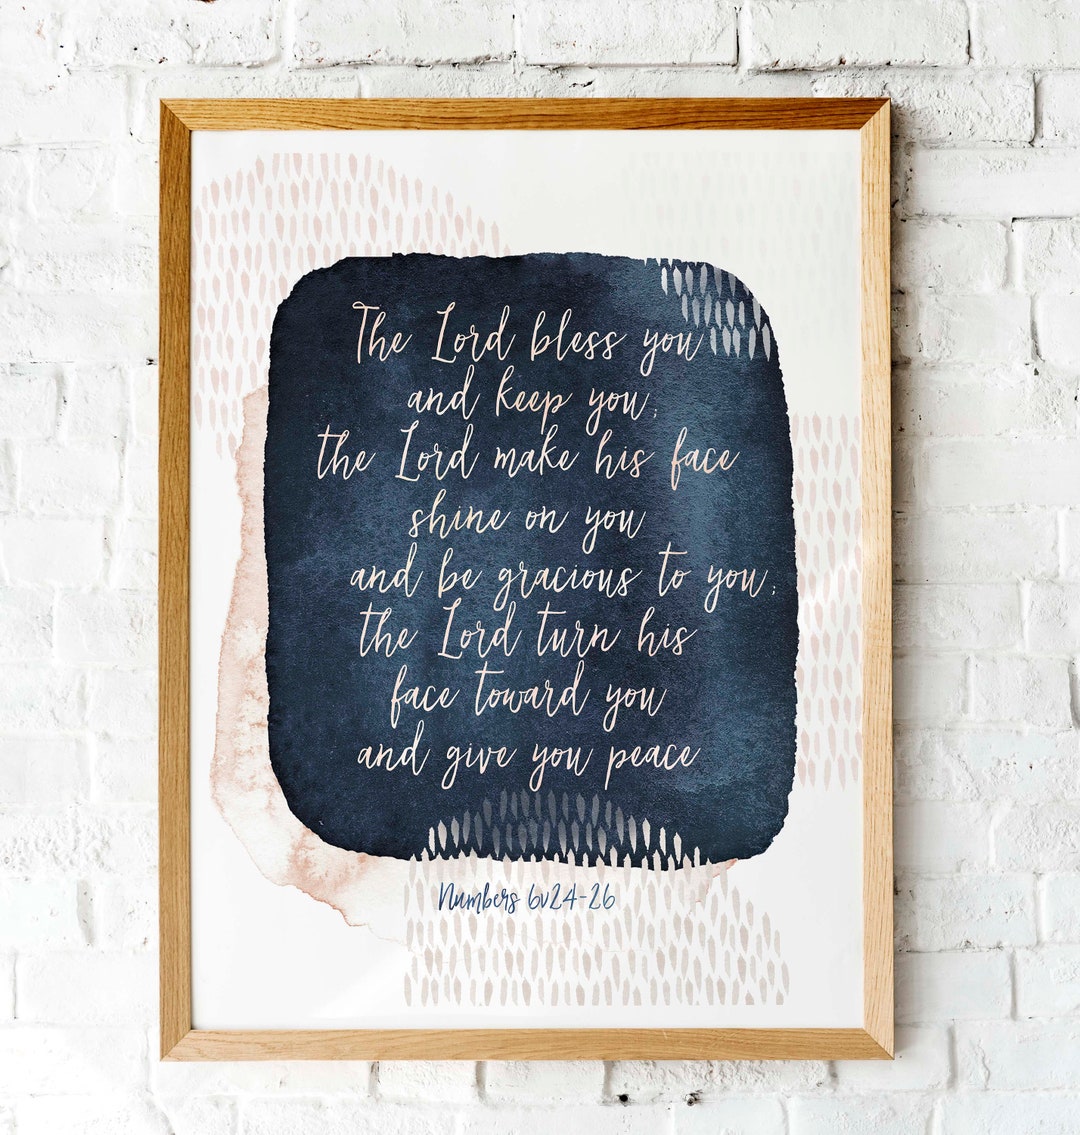 The Lord bless you
and keep you;
the Lord make his face
shine on you
and be gracious to you;
the Lord turn his
face toward you
and give you peace
Numbers 6v24-26